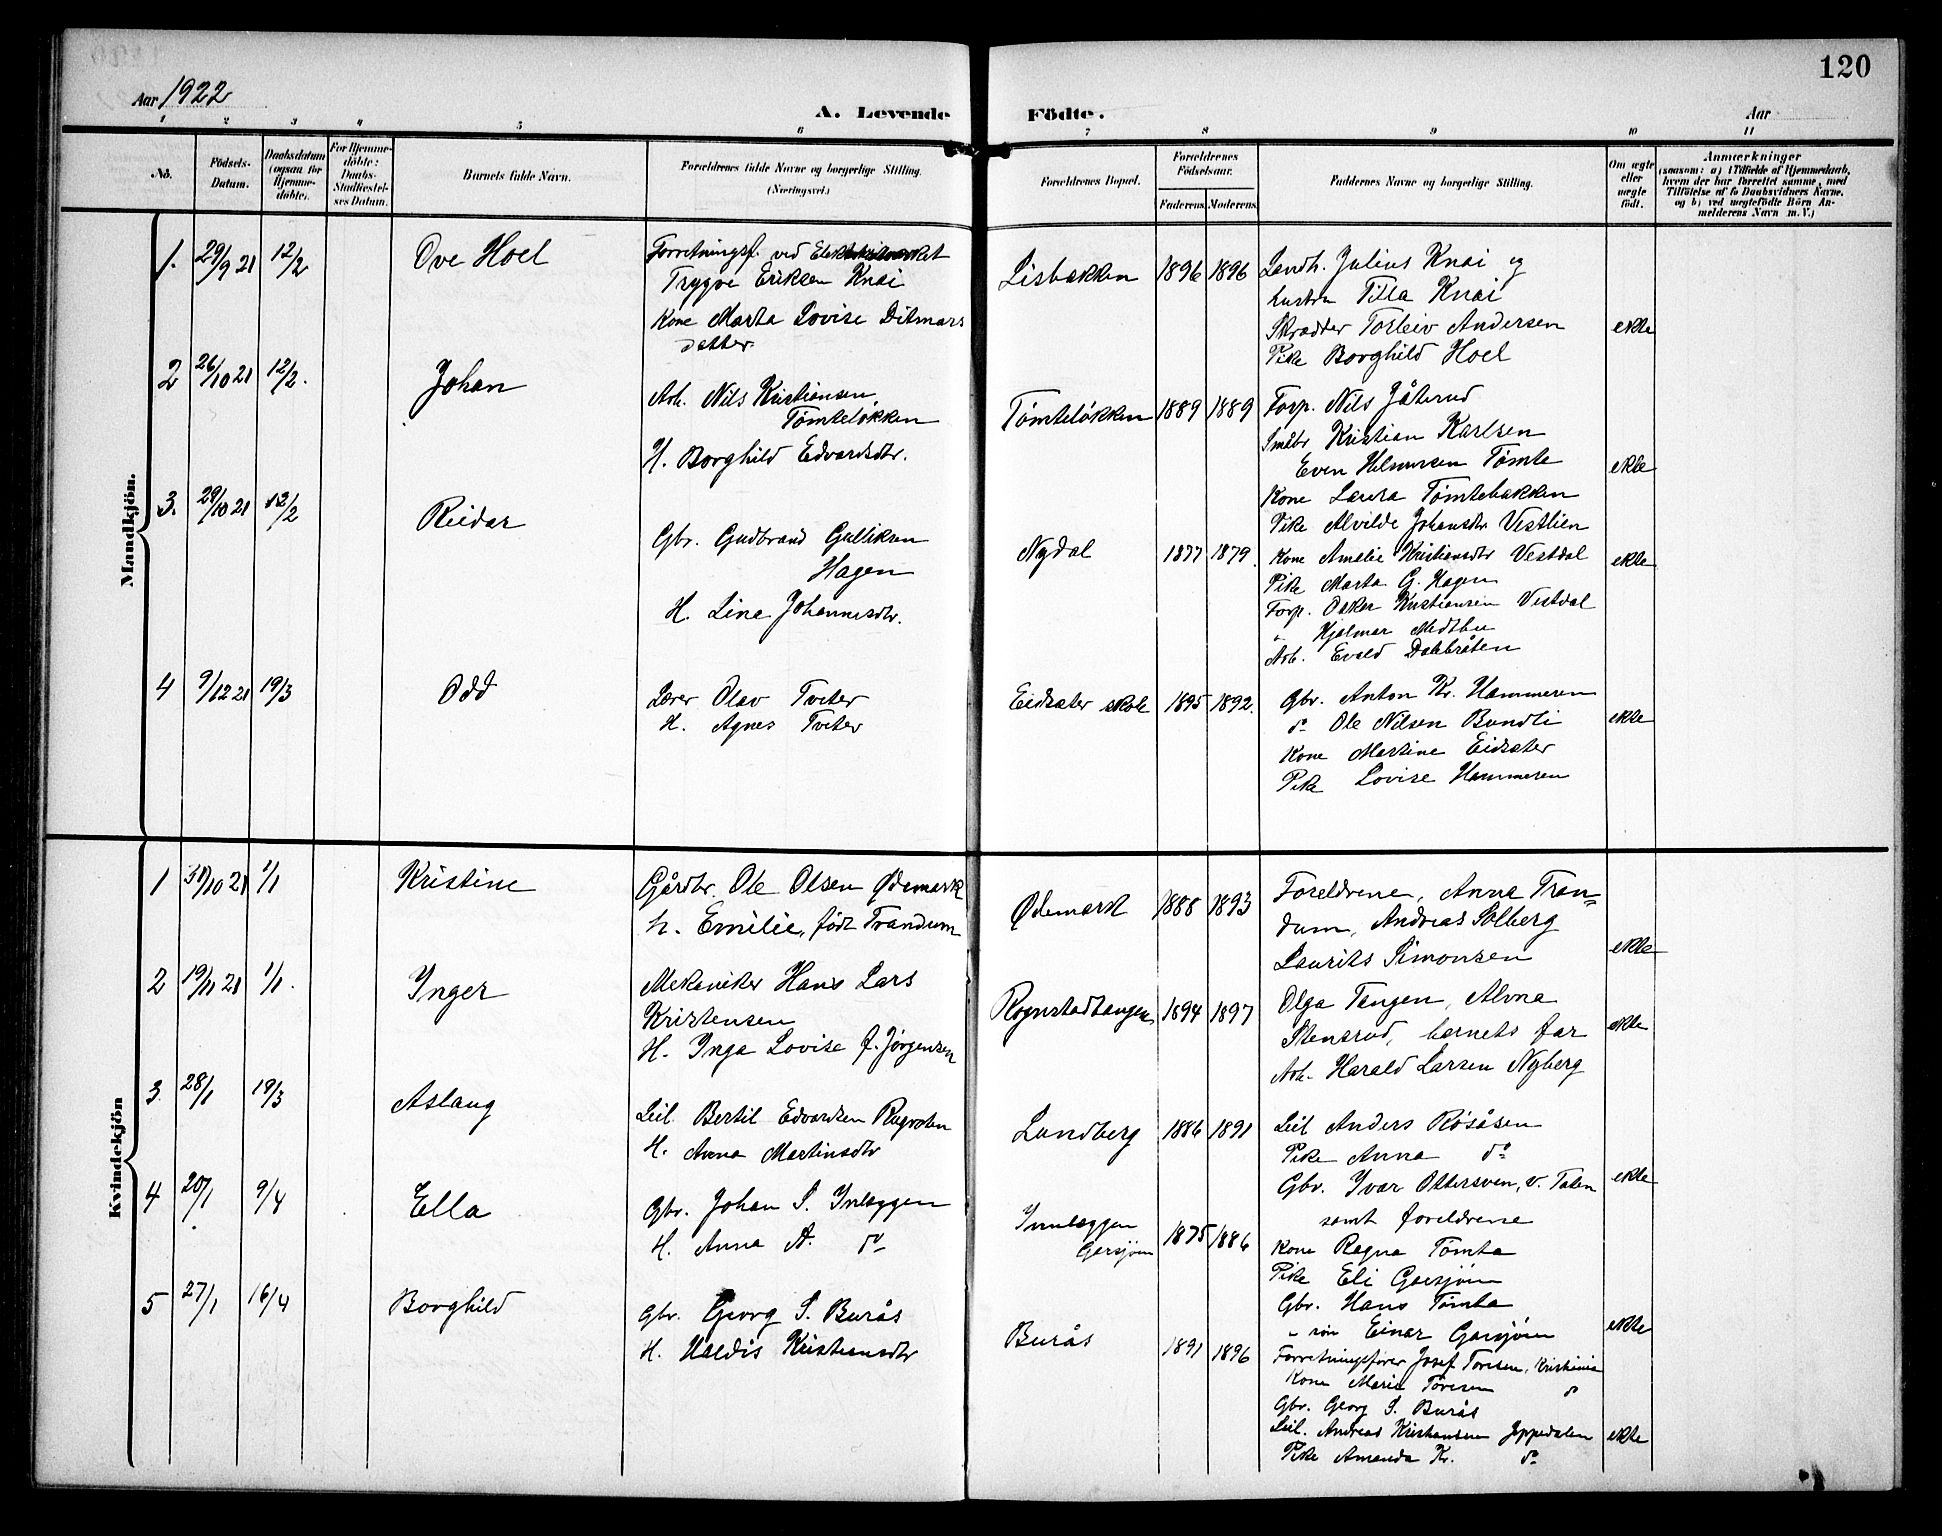 120
Aar 1922
A. Levende Födte.
Aar
1 2 3 4 5 6 7 8 9 10 11
No.
Födsels-
Datum.
Daabsdatum
(ogsaa for
Hjemme-
döbte).
For Hjemme-
döbte:
Daabs-
Stadfæstel-
ses Datum.
Barnets fulde Navn.
Forældrenes fulde Navne og borgerlige Stilling.
(Næringsvei.)
Forældrenes Bopæl.
Forældrenes
Födselsaar.
Faderens. Moderens.
Faddernes Navne og borgerlige Stilling.
Om ægte
eller
uægte
födt.
Anmærkninger
(saasom: a) i Tilfælde af Hjemmedaab,
hvem der har forrettet samme, med
Tilföielse af to Daabsvidners Navne,
og b) ved uægtefödte Börn An-
melderens Navn m. V.)
Mandkjön.
1. 29/9 21 12/2 Ove Hoel
Forretningsf. ved Elektrisitverket
Trygve Eriksen Knai
Kone Marta Lovise Ditmars
datter
Lisbakken 1896 1896
Landh. Julius Knai og
hustru Tilla Knai
Skrædder Torleiv Andersen
Pike Borghild Hoel
ekte
2 26/10 21 12/2. Johan
Arb. Nils Kristiansen,
Tömteløkken
H. Borghild Edvardsdtr.
Tömteløkken 1889 1889
Forp. Nils Jåterud
Småbr Kristian Karlsen
Even Helmersen Tömte
Kone Laura Tömtebakken
Pike Alvilde Johansdtr Vestlien
ekte
3. 29/10 21 12/2 Reidar
Gbr. Gudbrand Gulliksen
Hagen
H. Line Johannesdtr.
Nydal 1877 1879.
Kone Amalie Kristiansdtr Vestdal
Pike Marta G. Hagen
Forp. Oskar Kristiansen Vestdal
" Hjalmar Medtbu
Arb. Evald Dahlbråten
ekte
4 9/12 21 19/3 Odd
Lærer Olav Tveter
H. Agnes Tveter
Eidsæter skole 1895 1892.
Gbr. Anton Kr. Hammeren
do Ole Nilsen Bundli
Kone Martine Eidsæter
Pike Lovise Hammeren
ekte
Kvindekjön
1 31/10 21 1/1 Kristine
Gårdbr. Ole Olsen Ødemark
h. Emilie, født Trandum
Ødemark 1888 1893
Foreldrene, Anna Tran=
dum, Andreas Solberg
Laurits Simonsen
ekte
2 19/11 21 1/1. Inger
Mekaniker Hans Lars
Kristensen
H. Inga Lovise f. Jørgensen
Rognstadtangen 1894 1897
Olga Tangen, Alma
Stensrud, barnets far
Arb. Harald Larsen Nyberg
ekte
3. 28/1 19/3 Aslaug
Leil. Bertil Edvardsen
H. Anna Martinsdtr
Lundberg 1886 1891
Leil Anders Røsåsen
Pike Anna do
Gbr. Ivar Ottersven, v. Toten
samt foreldrene
ekte
4 20/1 9/4 Ella
Gbr. Johan S. Inlæggen
H. Anna A. do
Innlæggen
Garsjøen
1875 1886
Kone Ragna Tömta
Pike Eli Garsjøen
Gbr. Hans Tömta
" søn Einar Garsjøen
ekte
5 27/1 16/4 Borghild
Gbr. Georg S. Burås
H. Valdis Kristiansdtr
Burås 1891 1896
Forretningsfører Josef Toresen, Kristiania
Kone Marie Toresen do
Gbr. Georg S. Burås
Leil. Andreas Kristiansen Jeppedalen
Pike Amanda Kr. do
ekte